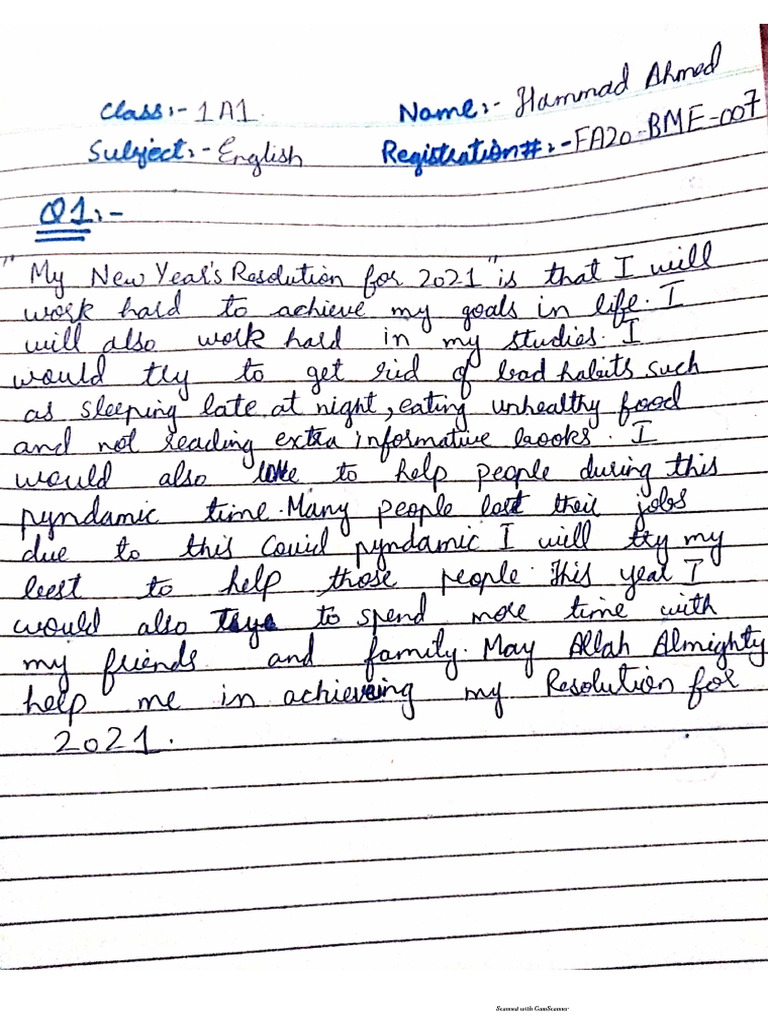 Class:- 1A1. Name:- Hammad Ahmed
Subject:- English Registration#:- FA20-BME-007
Q1:-
"My New Year's Resolution for 2021" is that I will
work hard to achieve my goals in life. I
will also work hard in my studies. I
would try to get rid of bad habits such
as sleeping late at night, eating unhealthy food
and not reading extra informative books. I
would also like to help people during this
pyndamic time. Many people lost their jobs
due to this Covid pyndamic I will try my
best to help those people. This year I
would also try to spend more time with
my friends and family. May Allah Almighty
help me in achieving my Resolution for
2021.
Scanned with CamScanner